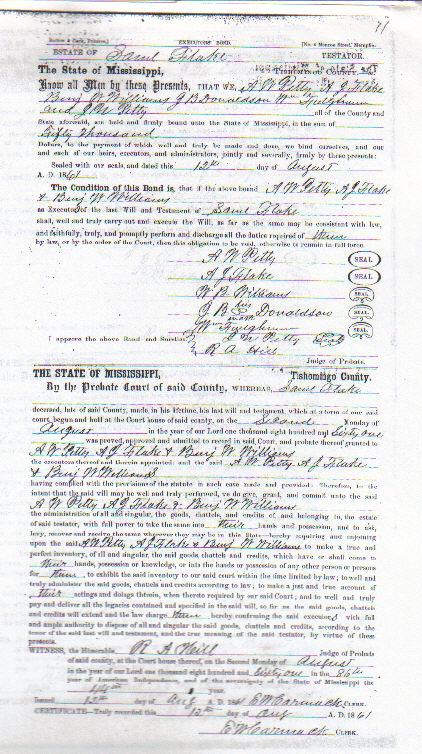 77
EXECUTORS' BOND. [No. 6 Monroe Street, Memphis.
ESTATE OF Saml Flake TESTATOR.
The State of Mississippi, TISHOMINGO COUNTY.
Know all Men by these Presents, THAT WE, A W Petty, A J Flake
Benj W Williams J B Donaldson Wm Fulghum
and J M Petty all of the County and
State aforesaid, are held and firmly bound unto the State of Mississippi, in the sum of
Fifty Thousand
Dollars, to the payment of which well and truly be made and done, we bind ourselves, and our
and each of our heirs, executors, and administrators, jointly and severally, firmly by these presents:
Sealed with our seals, and dated this 12th day of August
A. D. 1861
The Condition of this Bond is, that if the above bound A W Petty A J Flake
& Benj W Williams
as Executors of the last Will and Testament of Saml Flake
shall, well and truly carry out and execute the Will, as far as the same may be consistent with law,
and faithfully, truly, and promptly perform and discharge all the duties required of them
by law, or by the order of the Court, then this obligation to be void, otherwise to remain in full force.
A W Petty SEAL
A J Flake SEAL
W B Williams SEAL
J B his mark Donaldson SEAL
Wm Fulghum SEAL
I approve the above Bond and Sureties J M Petty
R A Hill
Judge of Probate.
THE STATE OF MISSISSIPPI, Tishomingo County.
By the Probate Court of said County, WHEREAS, Saml Flake
deceased, late of said County, made, in his lifetime, his last will and testament, which at a term of our said
court, begun and held at the Court house of said county, on the Second Monday of
August in the year of our Lord one thousand eight hundred and Sixty one
was proved, approved and admitted to record in said Court, and probate thereof granted to
A W Petty A J Flake & Benj W Williams
the executors thereof and therein appointed: and the said A W Petty A J Flake
& Benj W Williams
having complied with the provisions of the statute in such case made and provided: Therefore, to the
intent that the said will may be well and truly performed, we do give, grant, and commit unto the said
A W Petty A J Flake & Benj W Williams
the administration of all and singular the goods, chattels, and credits of, and belonging to, the estate
of said testator, with full power to take the same into their hands and possession, and to ask,
levy, recover and receive the same wherever they may be in this State—hereby requiring and enjoining
upon the said A W Petty, A J Flake & Benj W Williams to make a true and
perfect inventory, of all and singular, the said goods, chattels and credits, which have or shall come to
their hands, possession or knowledge, or into the hands or possession of any other person or persons
for them, to exhibit the said inventory to our said court within the time limited by law; to well and
truly administer the said goods, chattels and credits according to law; to make a just and true account of
their actings and doings thereon, when thereto required by our said Court; and to well and truly
pay and deliver all the legacies contained and specified in the said will, so far as the said goods, chattels
and credits will extend and the law charge them hereby confirming the said executors with full
and ample authority to dispose of all and singular the said goods, chattels and credits, according to the
tenor of the said last will and testament, and the true meaning of the said testator, by virtue of these
presents.
WITNESS, the Honorable, R A Hill Judge of Probate
of said county, at the Court house thereof, on the Second Monday of August
in the year of our Lord one thousand eight hundred and Sixty one in the 86th
year of American Independence, and of the sovereignty of the State of Mississippi the
year.
Issued 12th day of Aug A. D. 1861 E W Carmack CLERK.
CERTIFICATE—Truly recorded this 12th day of Aug A. D. 1861
E W Carmack CLERK.